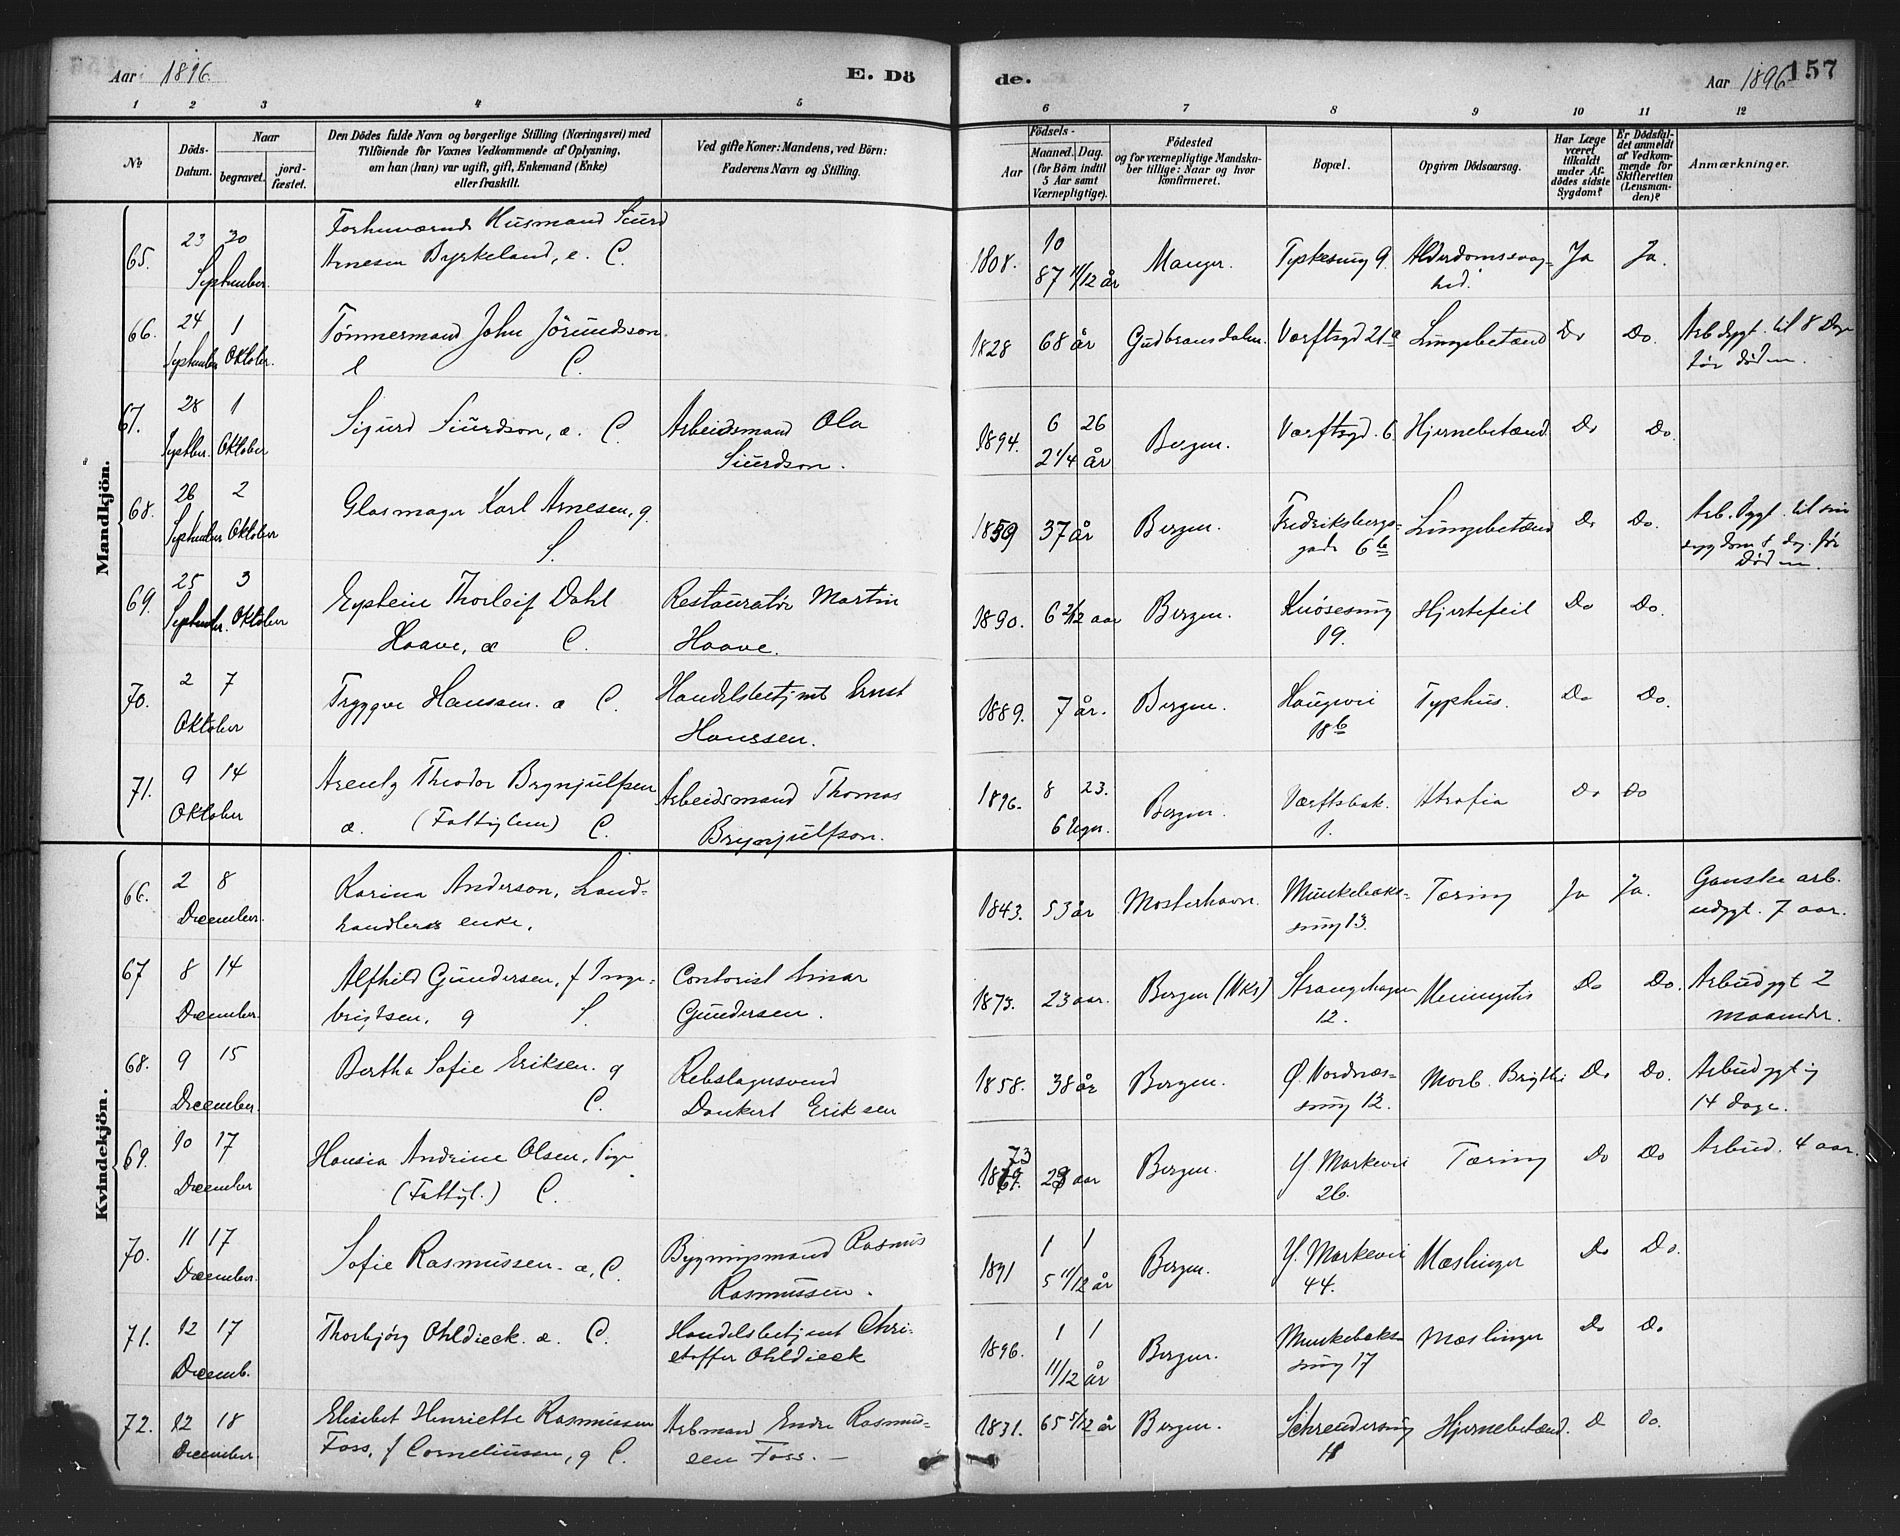 Aar 1896. E. Dö
de. Aar 1896 157
1 2 3 4 5 6 7 8 9 10 11 12
No
Döds-Datum.
Naar
begravet. jordfæstet.
Den Dödes fulde Navn og borgerlige Stilling (Næringsvei) med
Tilföiende for Voxnes Vedkommende af Oplysning,
om han (hun) var ugift, gift, Enkemand (Enke)
eller fraskilt.
Ved gifte Koner: Mandens, ved Börn:
Faderens Navn og Stilling.
Födsels-
Aar Maaned. Dag.
(for Börn indtil
5 Aar samt
Værnepligtige).
Födested
og for værnepligtige Mandskaber tillige: Naar og hvor
konfirmeret.
Bopæl.
Opgiven Dödsaarsag.
Har Læge
været
tilkaldt
under Afdödes sidste
Sygdom?
Er Dödsfaldet anmeldt
af Vedkommende for
Skifteretten
(Lensmanden)?
Anmærkninger.
Mandkjön.
65. 23 September 30 Forhenværende Husmand Siurd
Arnesen Byrkeland, e. C. 1808. 10 87 11/12 år Manger. Tyskesmug 9. Alderdomssvaghed. Ja Ja.
66. 24 September 1 Oktober. Tömmermand John Jörundsson
e C. 1828 68 år Gudbransdalen. Værftsgd 21a Lungebetænd Do Do. Arb dygt. til 8 Dage
før døden.
67. 28 Septbr. 1 Oktober Sigurd Siurdson, æ. C. Arbeidsmand Ola
Siurdson. 1894. 6 26 2 1/4 år Bergen. Værftsgd. 6. Hjernebetænd. Do Do.
68. 26 September 2 Oktober Glasmager Karl Arnesen, g.
S. 1859 37 år Bergen. Fredriksbergsgade 6b Lungebetænd Do Do. Arb. dygt. til sin
sygdom 8 dag. før
Døden.
69. 25 September. 3 Oktober Eystein Thorleif Dahl
Haave, æ C. Restauratør Martin
Haave. 1890. 6 2/12 aar Bergen. Knøsesmug
19. Hjertefeil Do Do.
70. 2 7 Oktober Tryggve Hanssen. æ C. Handelsbetjent Ernst
Hanssen. 1889. 7 år. Bergen. Haugevei
18b Typhus. Do Do.
71. 9 14 Oktober Arentz Theodor Brynjulfsen
æ. (Fattiglem) C. Arbeidsmand Thomas
Brynjulfson. 1896. 8 23. 6 Uger. Bergen. Værftsbak.
1. Atrofia Do Do
Kvindekjön.
66. 2 8 December. Karina Anderson, Landhandlers enke. 1843. 53 år Mosterhavn. Munkebæksmug 13. Tæring Ja Ja. Ganske arb.
udygt. 7 aar.
67 8 14 December. Alfhild Gundersen, f Ingebrigtsen, g S. Contorist Einar
Gundersen. 1873. 23 aar. Bergen (NKs) Strangehagen
12. Meningitis Do Do. Arbudygt 2
maaneder.
68. 9 15 December. Bertha Sofie Eriksen. g
C. Rebslagersvend
Dankert Eriksen 1858. 38 år Bergen. Ø. Nordnæssmug 12. Morb. Brigthi Do Do. Arbudygtig
14 dage.
69. 10 17 December Hansia Andrine Olsen, Pige
(Fattigl.) C. 1873 23 aar Bergen. Y. Markevei
26. Tæring Do Do Arbud. 4 aar.
70. 11 17 December. Sofie Rasmussen. æ, C. Bygningsmand Rasmus
Rasmussen. 1891 1 1 5 11/12 år Bergen. Y. Markevei
44. Mæslinger Do Do.
71. 12 17 Decemb. Thorbjörg Ohldieck. æ. C. Handelsbetjent Christoffer Ohldieck 1896. 1 1 11/12 år Bergen. Munkebæksmug 17 Mæslinger Do Do
72. 12 18 December. Elisabet Henriette Rasmussen
Foss, f Corneliussen, g C. Arbmand Endre Rasmussen Foss. 1831. 65 5/12 år Bergen. Schreudersmug
11 Hjernebetænd. Do Do.